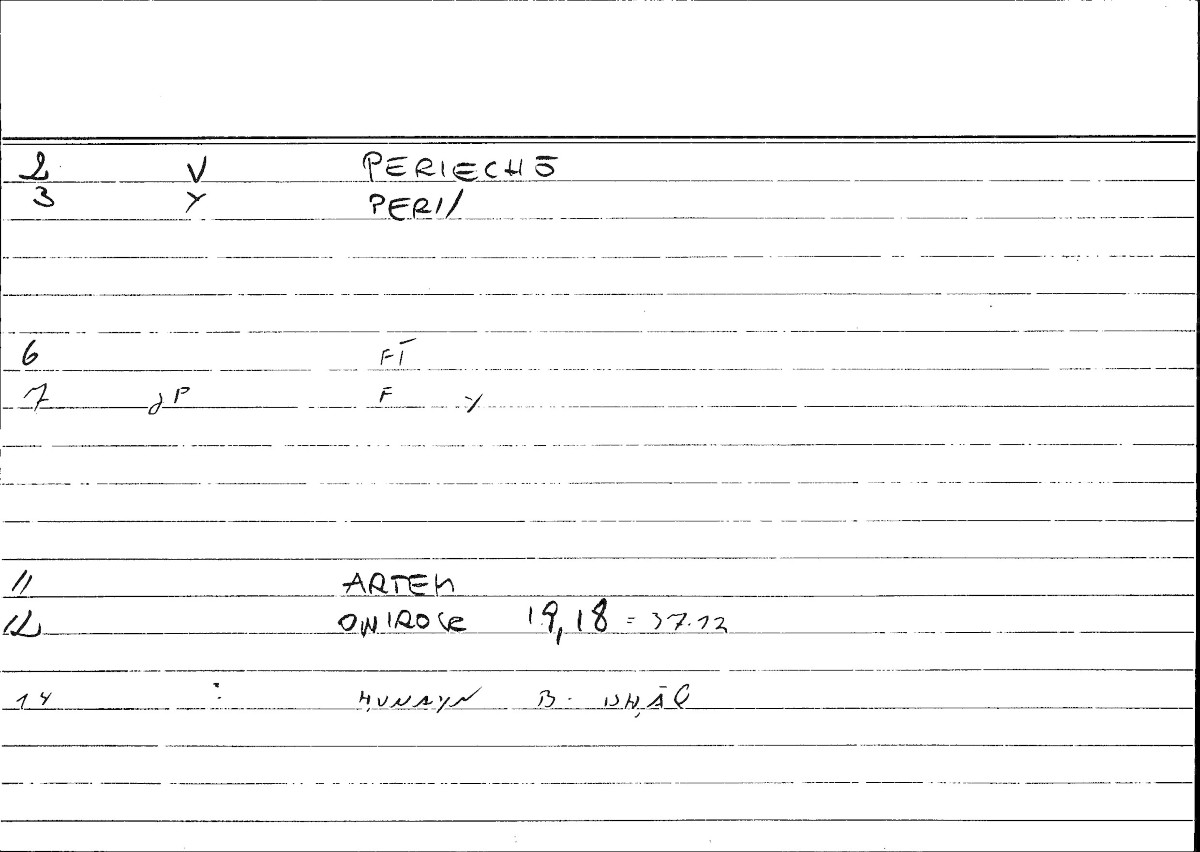 2 V PERIECHŌ
3 Y PERI/
6 FĪ
7 gP F Y
11 ARTEM
12 ONIROCR 19,18 = 37.12
14 : ḤUNAYN B. ISḤĀQ